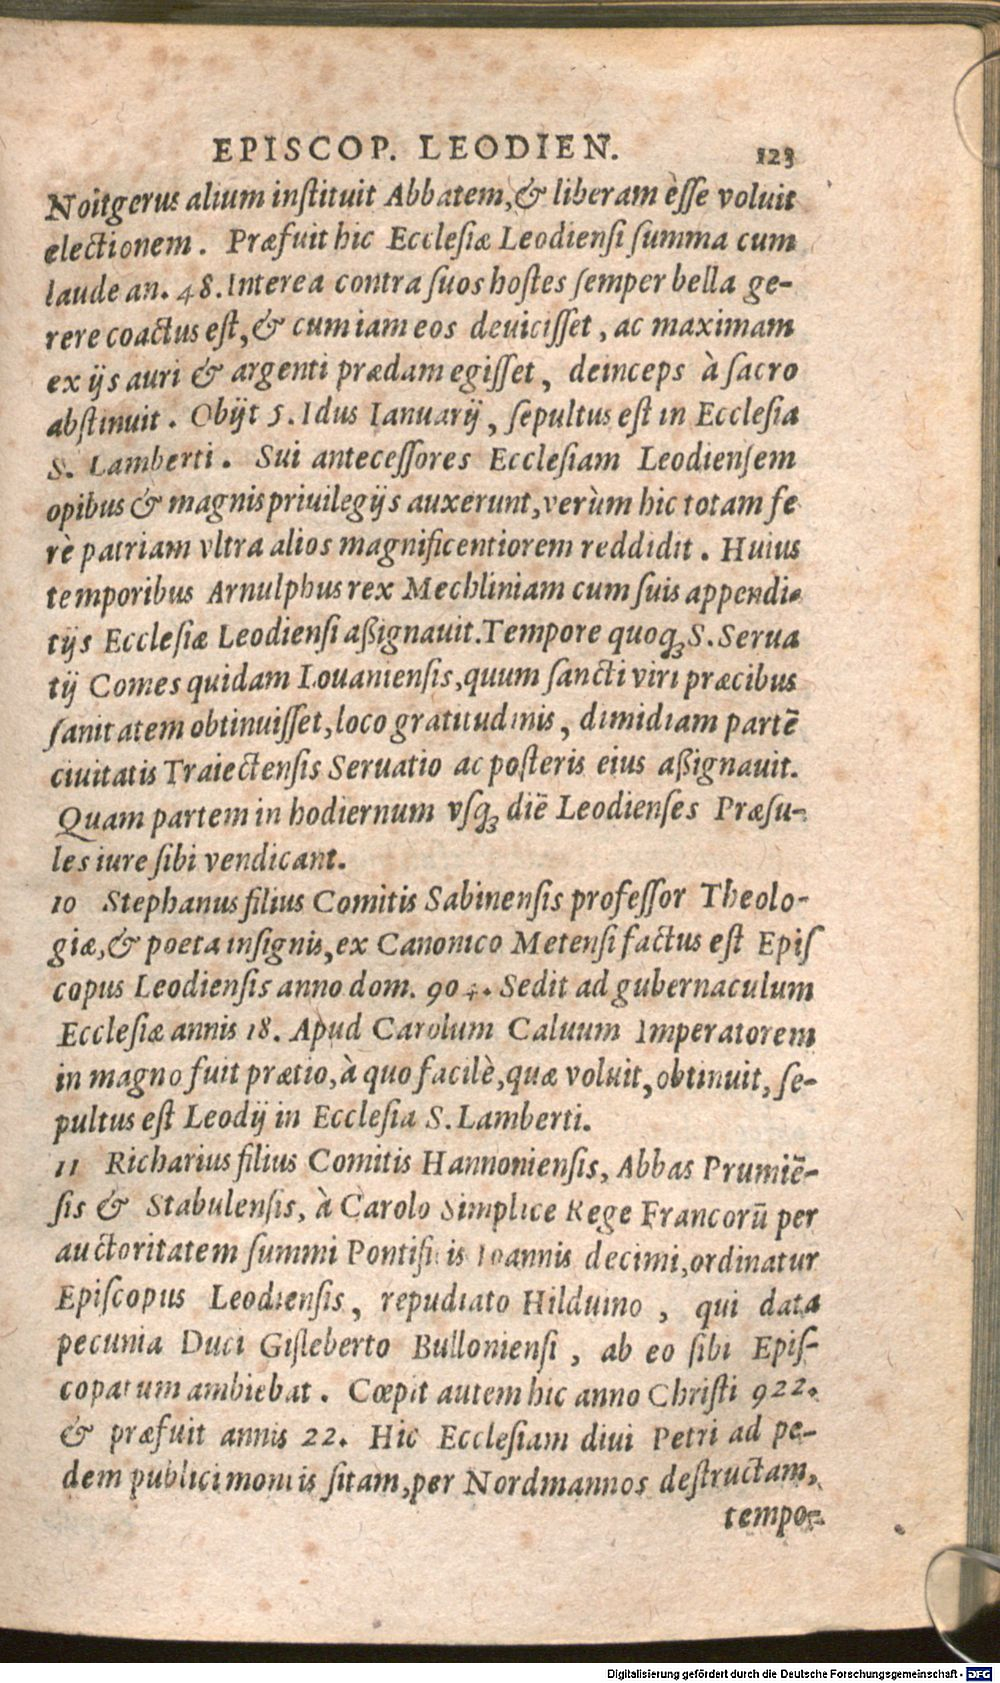 EPISCOP. LEODIEN. 123
Noitgerus alium inſtituit Abbatem, & liberam eſſe voluit
electionem. Præfuit hic Eccleſiæ Leodienſi ſumma cum
laude an. 48. Interea contra ſuos hoſtes ſemper bella ge-
rere coactus eſt, & cum iam eos deuiciſſet, ac maximam
ex ijs auri & argenti prædam egiſſet, deinceps à ſacro
abſtinuit. Obijt 5. Idus Ianuarij, ſepultus eſt in Eccleſia
S. Lamberti. Sui anteceſſores Eccleſiam Leodienſem
opibus & magnis priuilegijs auxerunt, verùm hic totam fe
rè patriam vltra alios magnificentiorem reddidit. Huius
temporibus Arnulphus rex Mechliniam cum ſuis appendi-
tijs Eccleſiæ Leodienſi aßignauit. Tempore quoq; S. Serua
tij Comes quidam Louanienſis, quum ſancti viri præcibus
ſanitatem obtinuiſſet, loco gratitudinis, dimidiam partē
ciuitatis Traiectenſis Seruatio ac poſteris eius aßignauit.
Quam partem in hodiernum vſq; diē Leodienſes Præſu-
les iure ſibi vendicant.
10 Stephanus filius Comitis Sabinenſis profeſſor Theolo-
giæ, & poeta inſignis, ex Canonico Metenſi factus eſt Epiſ
copus Leodienſis anno dom. 904. Sedit ad gubernaculum
Eccleſiæ annis 18. Apud Carolum Caluum Imperatorem
in magno fuit prætio, à quo facilè, quæ voluit, obtinuit, ſe-
pultus eſt Leodij in Eccleſia S. Lamberti.
11 Richarius filius Comitis Hannonienſis, Abbas Prumiē-
ſis & Stabulenſis, à Carolo Simplice Rege Francorū per
auctoritatem ſummi Pontificis Ioannis decimi, ordinatur
Epiſcopus Leodienſis, repudiato Hilduino, qui data
pecunia Duci Giſleberto Bullonienſi, ab eo ſibi Epiſ-
copatum ambiebat. Cœpit autem hic anno Chriſti 922.
& præfuit annis 22. Hic Eccleſiam diui Petri ad pe-
dem publici montis ſitam, per Nordmannos deſtructam,
tempo-
Digitalisierung gefördert durch die Deutsche Forschungsgemeinschaft - DFG